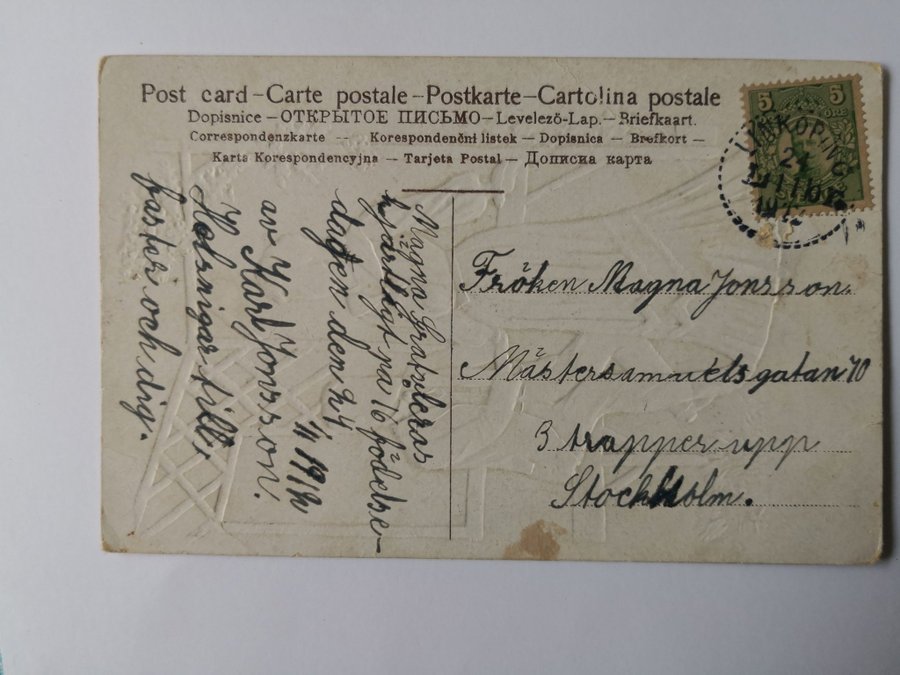 Post card – Carte postale – Postkarte – Cartolina postale
Dopisnice – ОТКРЫТОЕ ПИСЬМО – Levelező-Lap. – Briefkaart.
Correspondenzkarte -- Korespondenčni listek – Dopisnica – Brefkort –
Karta Korespondencyjna – Tarjeta Postal – Дописна карта
5 5
ÖRE
LINKÖPING
Magna Gratuleras
hjärtligt på 16 födelse-
dagen den 24
1/1 1912
av Karl Jonsson.
till
farbror och dig.
Fröken Magna Jonsson.
Mästersamuelsgatan 70
3 trappor upp
Stockholm.